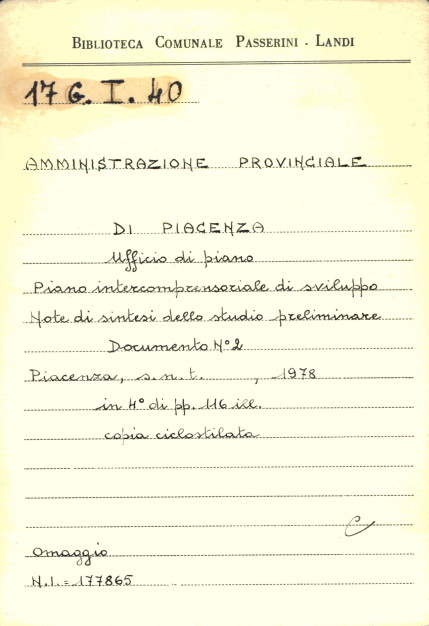 BIBLIOTECA COMUNALE PASSERINI - LANDI
17 G. I. 40
AMMINISTRAZIONE PROVINCIALE
DI PIACENZA
Ufficio di piano
Piano intercomprensoriale di sviluppo
Note di sintesi dello studio preliminare
Documento N° 2
Piacenza, s.n.t. , 1978
in 4° di pp. 116 ill.
copia ciclostilata
C
Omaggio
N.I. = 177865